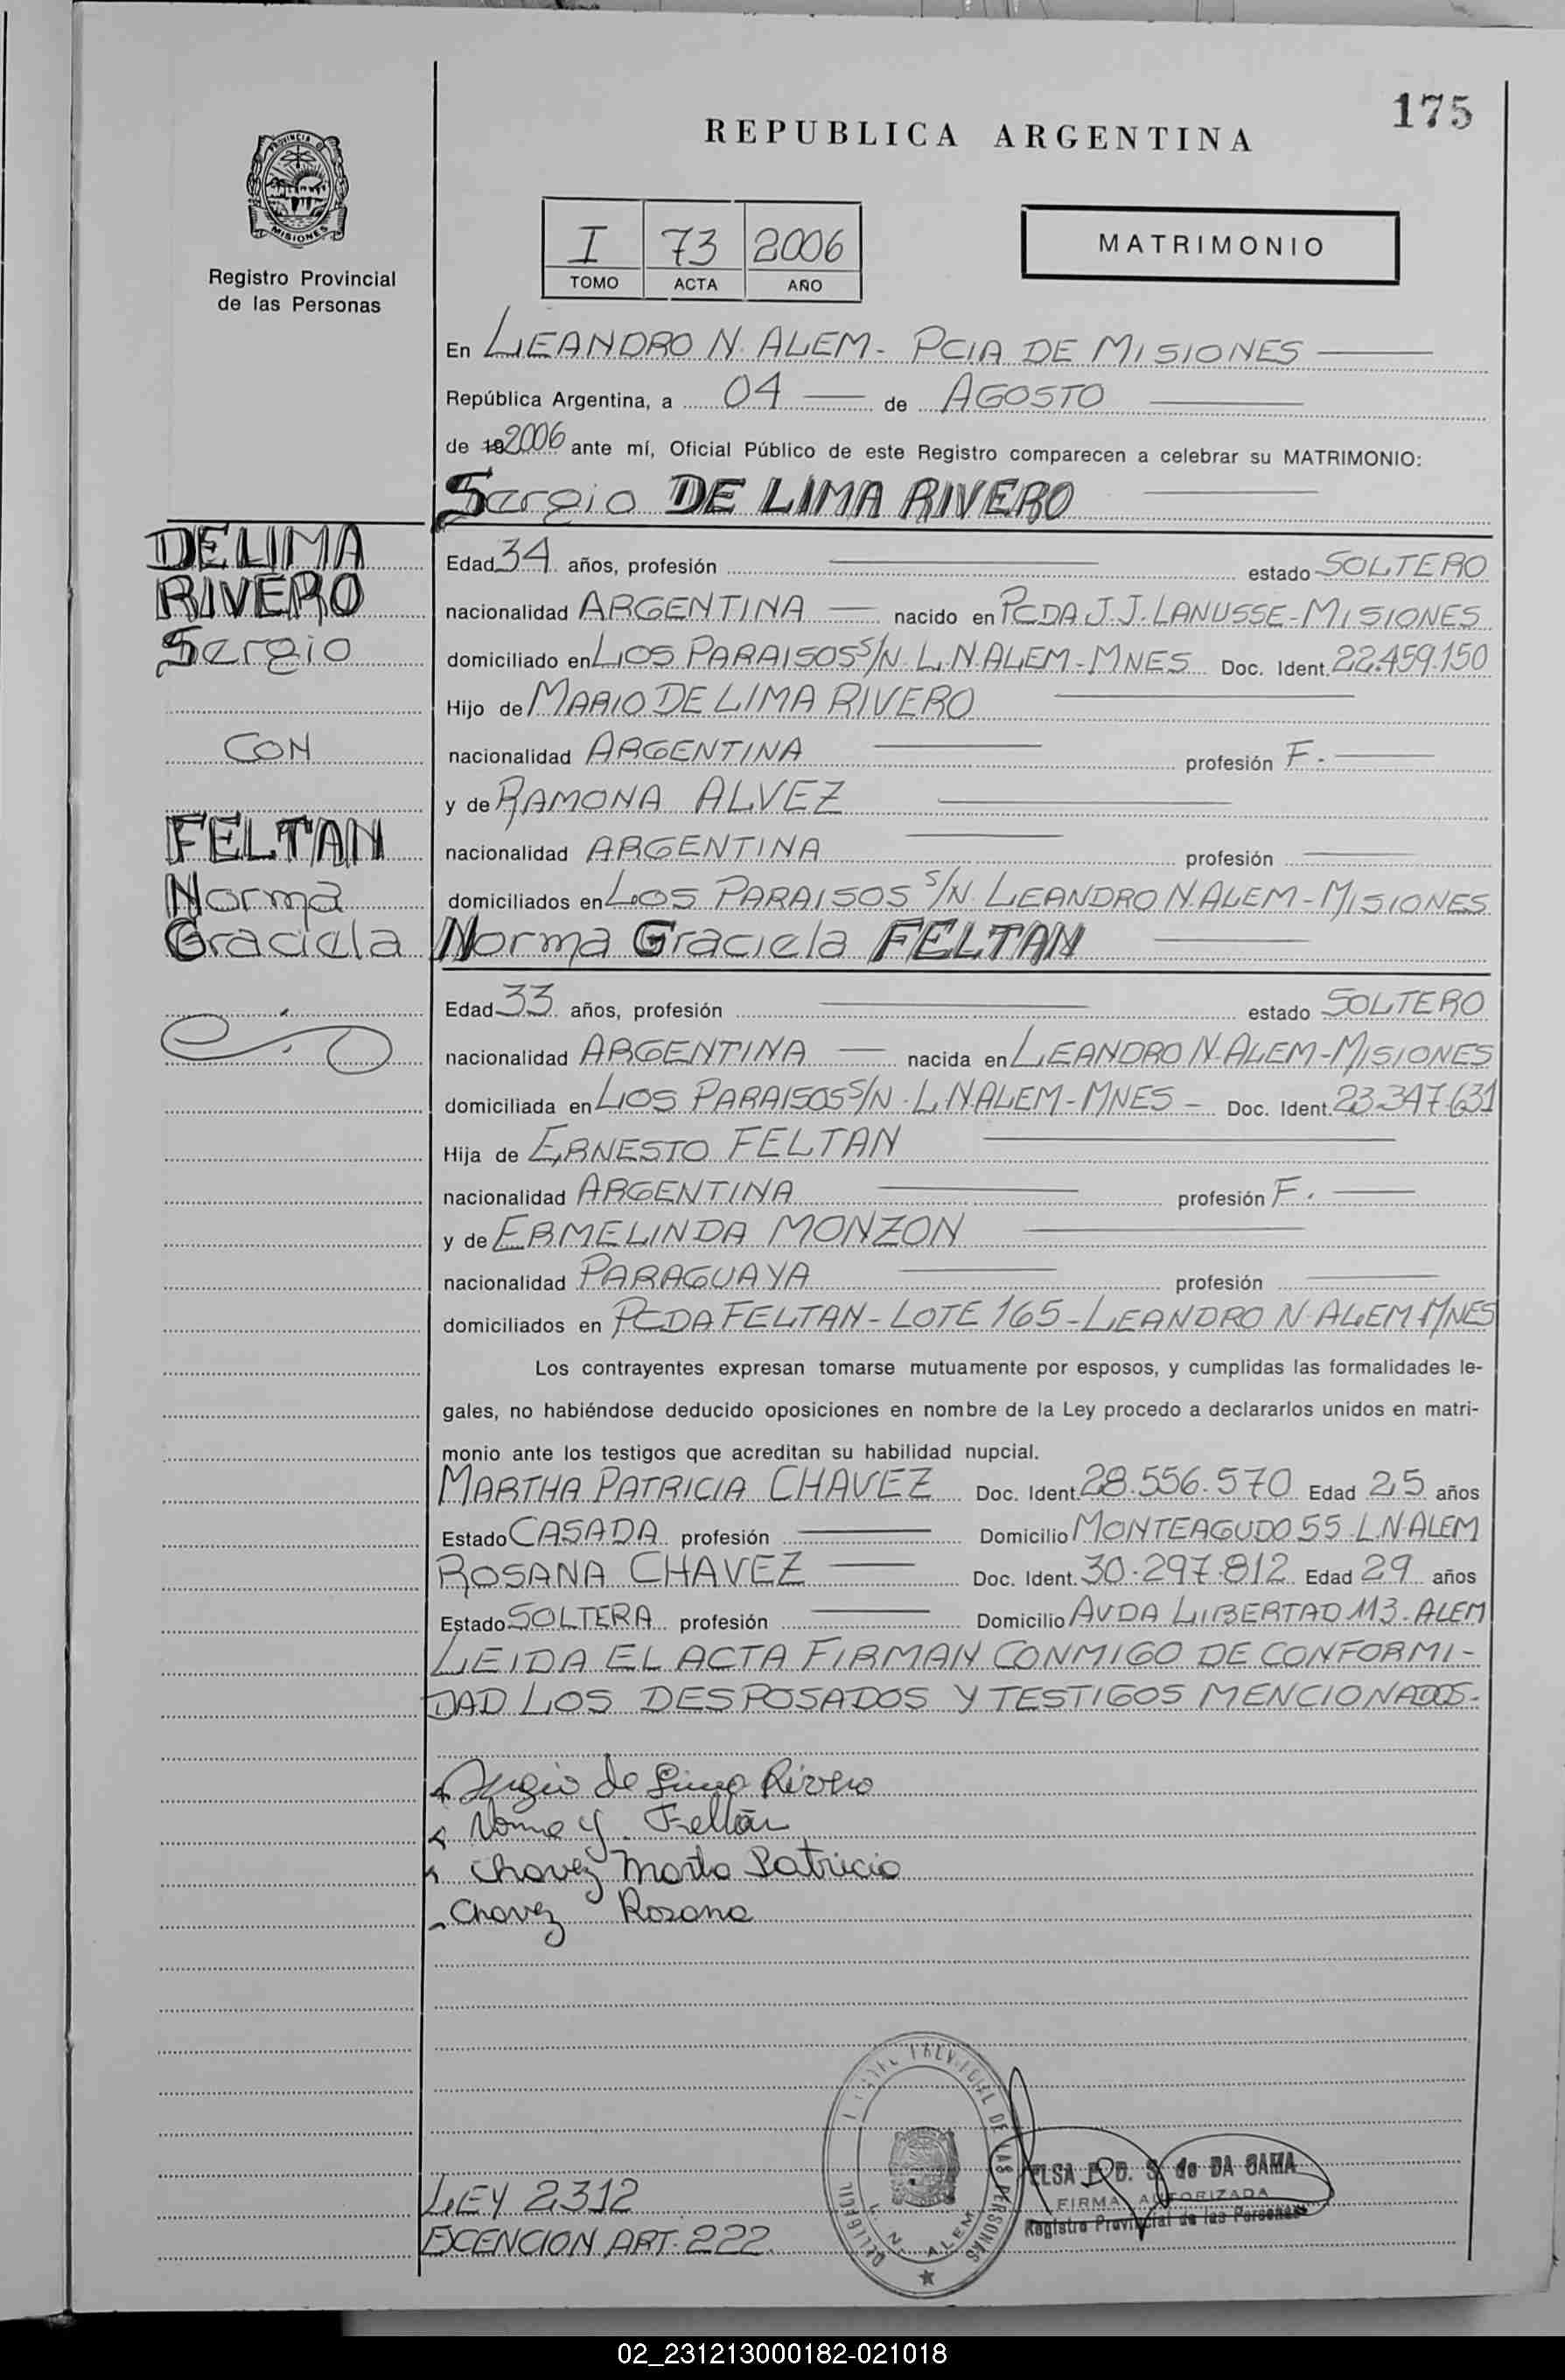 175
REPUBLICA ARGENTINA
PROVINCIA D
MISIONES
Registro Provincial
de las Personas
I 73 2006
TOMO ACTA AÑO
MATRIMONIO
En LEANDRO N. ALEM - PCIA DE MISIONES
República Argentina, a 04 de AGOSTO
de 192006 ante mí, Oficial Público de este Registro comparecen a celebrar su MATRIMONIO:
Sergio DE LIMA RIVERO
DE LIMA
RIVERO
Sergio
CON
FELTAN
Norma
Graciela
Edad 34 años, profesión estado SOLTERO
nacionalidad ARGENTINA nacido en PCDA J.J. LANUSSE - MISIONES
domiciliado en LOS PARAISOS S/N. L.N.ALEM - MNES Doc. Ident. 22.459.150
Hijo de MARIO DE LIMA RIVERO
nacionalidad ARGENTINA profesión F.
y de RAMONA ALVEZ
nacionalidad ARGENTINA profesión
domiciliados en LOS PARAISOS S/N. LEANDRO N.ALEM - MISIONES
Norma Graciela FELTAN
Edad 33 años, profesión estado SOLTERO
nacionalidad ARGENTINA nacida en LEANDRO N.ALEM - MISIONES
domiciliada en LOS PARAISOS S/N. L.N.ALEM - MNES - Doc. Ident. 23.347.631
Hija de ERNESTO FELTAN
nacionalidad ARGENTINA profesión F.
y de ERMELINDA MONZON
nacionalidad PARAGUAYA profesión
domiciliados en PCDA FELTAN - LOTE 165 - LEANDRO N. ALEM MNES
Los contrayentes expresan tomarse mutuamente por esposos, y cumplidas las formalidades le-
gales, no habiéndose deducido oposiciones en nombre de la Ley procedo a declararlos unidos en matri-
monio ante los testigos que acreditan su habilidad nupcial.
MARTHA PATRICIA CHAVEZ Doc. Ident. 28.556.570 Edad 25 años
Estado CASADA profesión Domicilio MONTEAGUDO 55 L.N.ALEM
ROSANA CHAVEZ Doc. Ident. 30.297.812 Edad 29 años
Estado SOLTERA profesión Domicilio AVDA LIBERTAD 113 - ALEM
LEIDA EL ACTA FIRMAN CONMIGO DE CONFORMI-
DAD LOS DESPOSADOS Y TESTIGOS MENCIONADOS -
Sergio de Lima Rivero
Norma G. Feltán
Chavez Marta Patricia
Chavez Rosana
DE LAS PERSONAS
L. N. ALEM
ELSA de DA GAMA
FIRMA AUTORIZADA
Registro Provincial de las Personas
LEY 2312
EXCENCION ART. 222.
02_231213000182-021018